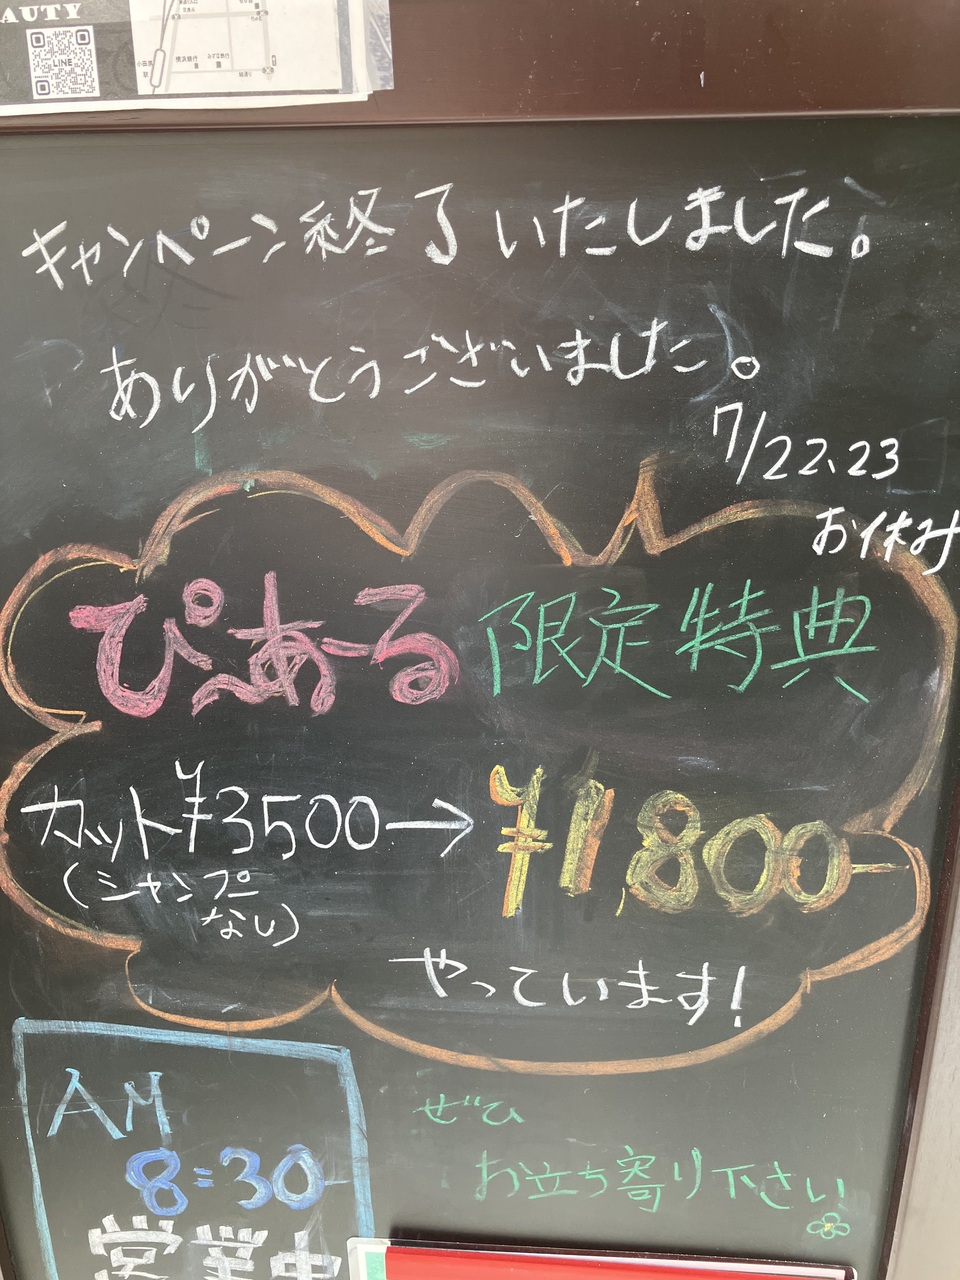 AUTY
LINE
横浜銀行
キャンペーン終了いたしました。
ありがとうございました。
7/22、23
お休み
ぴーあーる 限定特典
カット¥3500→¥1,800
(シャンプー
なし)
やっています!
AM
8:30
営業中
ぜひ
お立ち寄り下さい!